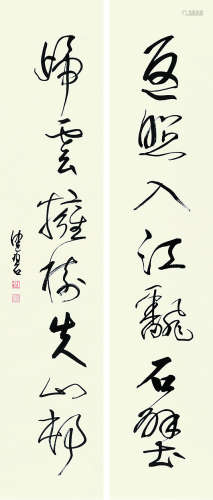 返照入江飜石壁
歸雲擁樹失山邨